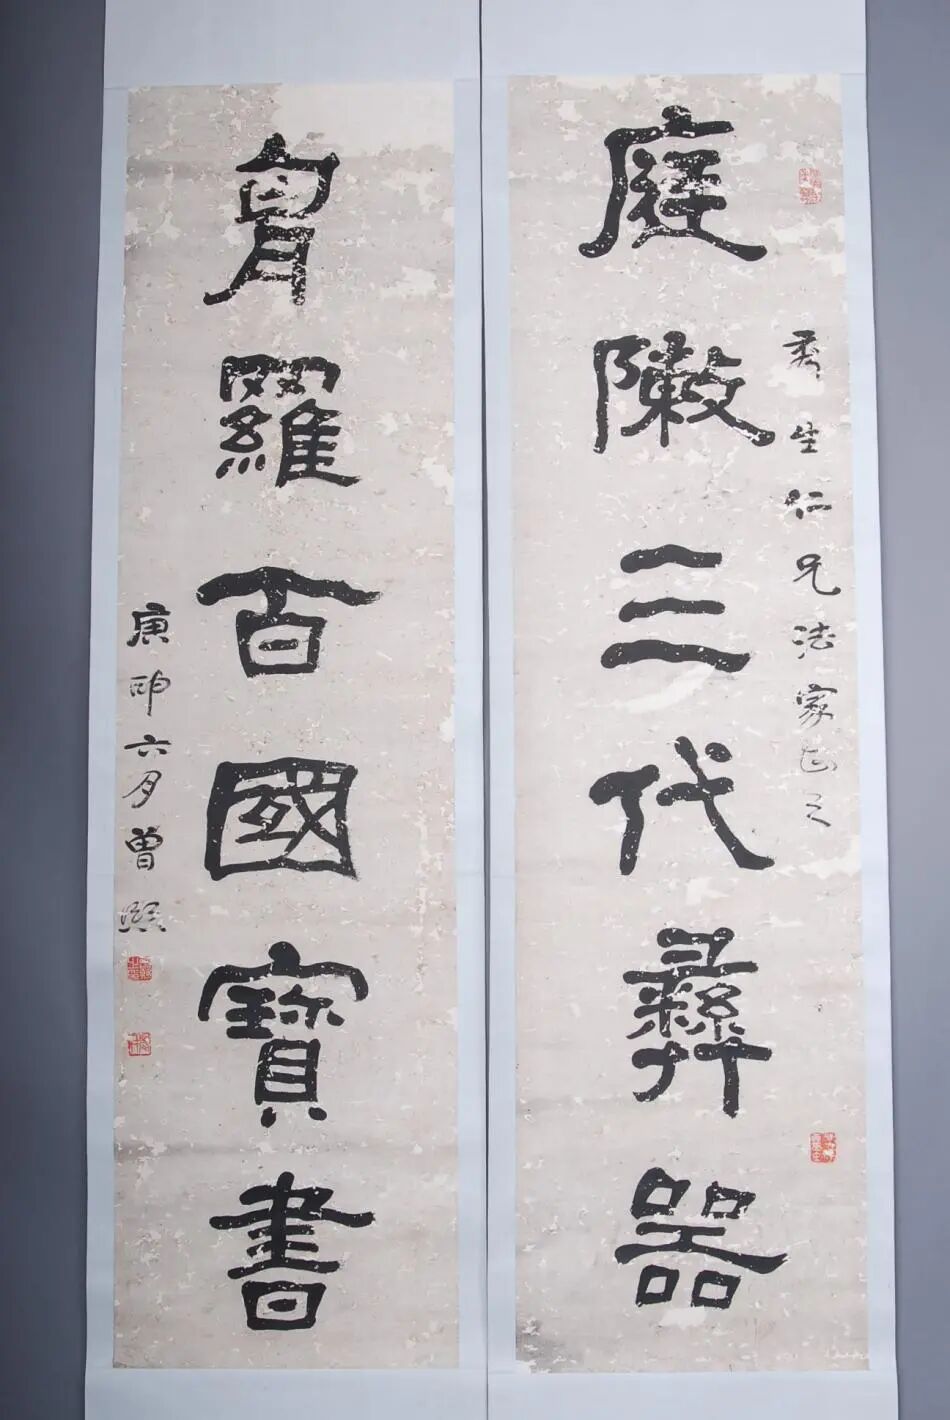 秀生仁兄法家正之
庭敶三代彝器
胷羅百國寶書
庚申六月曾熙